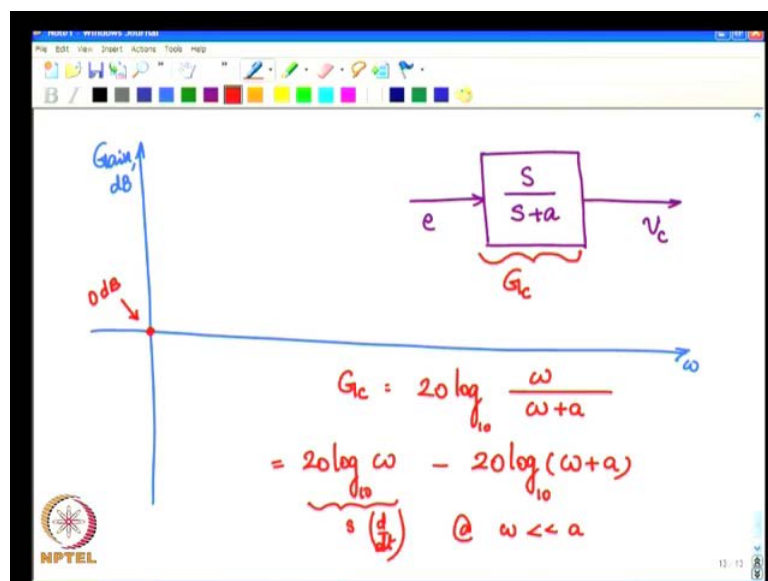 Note1 - Windows Journal
File Edit View Insert Actions Tools Help
B I
Gain,
dB
S
S+a
e
v_c
G_c
0 dB
ω
G_c = 20 log_10 ω / (ω+a)
= 20 log_10 ω - 20 log_10 (ω+a)
s (d/dt) @ ω << a
NPTEL
13 / 13